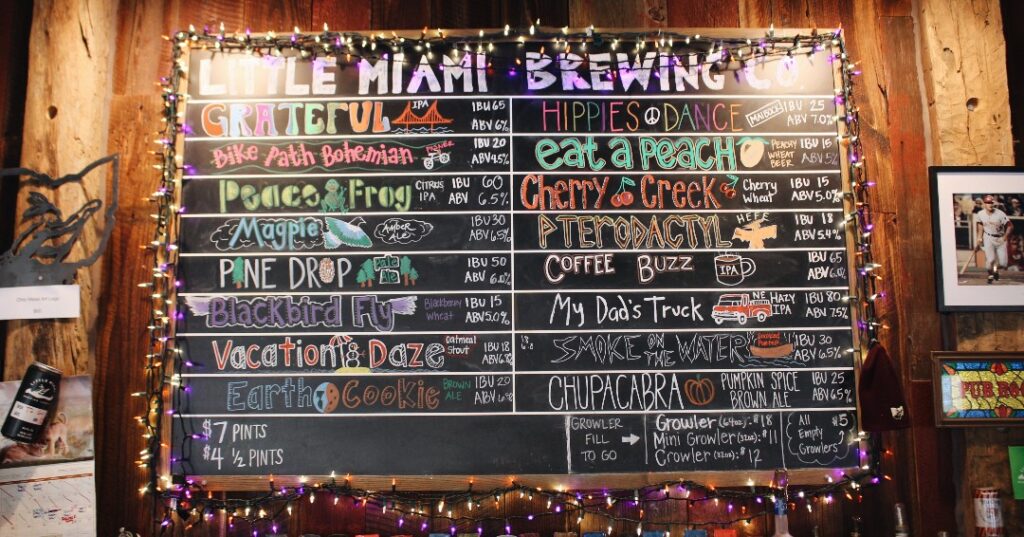 LITTLE MIAMI BREWING CO.
GRATEFUL IPA IBU 65 ABV 6%
Bike Path Bohemian PILSNER IBU 20 ABV 4.5%
Peace Frog CITRUS IPA IBU 60 ABV 6.5%
Magpie Amber ALE IBU 30 ABV 6.5%
PINE DROP Pale Ale IBU 50 ABV 6.0%
Blackbird Fly Blackberry Wheat IBU 15 ABV 5.0%
Vacation Daze Oatmeal Stout IBU 18 ABV
Earth Cookie BROWN ALE IBU 20 ABV
HIPPIES DANCE MAIBOCK IBU 25 ABV 7.0%
eat a Peach PEACHY WHEAT BEER IBU 15 ABV 5%
Cherry Creek Cherry Wheat IBU 15 ABV 5.0%
PTERODACTYL HEFE IBU 18 ABV 5.4%
COFFEE BUZZ IPA IBU 65 ABV 6.0%
My Dad's Truck NE HAZY IPA IBU 80 ABV 7.5%
SMOKE ON THE WATER Smoked Porter IBU 30 ABV 6.5%
CHUPACABRA PUMPKIN SPICE BROWN ALE IBU 25 ABV 6.5%
$7 PINTS
$4 ½ PINTS
GROWLER
FILL
TO GO
Growler (64oz.) $18
Mini Growler (32oz) $11
Crowler (32oz) $12
All $5
Empty
Growlers